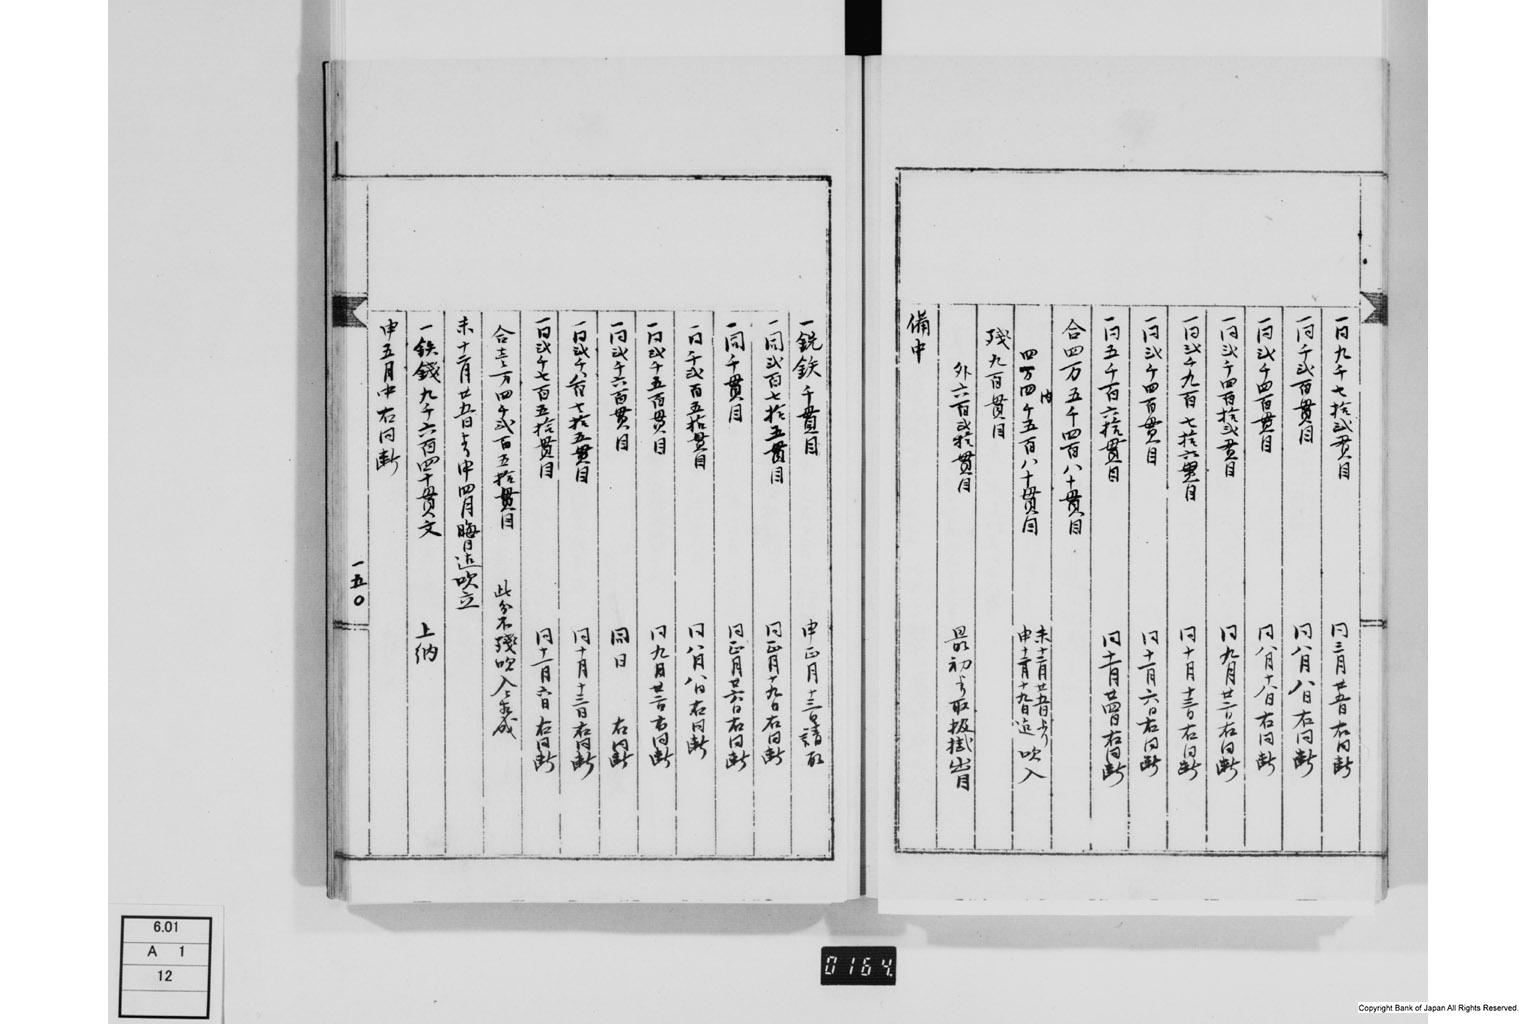 一同九千七拾弐貫目 同三月廿五日右同断
一同千弐百貫目 同八月八日右同断
一同弐千四百貫目 同八月十八日右同断
一同弐千四百拾弐貫目 同九月廿二日右同断
一同弐千九百七拾六貫目 同十月十三日右同断
一同弐千四百貫目 同十一月六日右同断
一同五千百六拾貫目 同十一月廿四日右同断
合四万五千四百八十貫目
内
四万四千五百八十貫目 未十二月廿五日ゟ申十二月十九日迄吹入
残九百貫目
外六百弐拾貫目 最初ゟ取扱掛出目
備中
一銑鉄千貫目 申正月十三日請取
一同弐百七拾五貫目 同正月十九日右同断
一同千貫目 同正月廿六日右同断
一同千弐百五拾貫目 同八月八日右同断
一同弐千五百貫目 同九月廿二日右同断
一同弐千六百貫目 同日 右同断
一同弐千八百七拾五貫目 同十月十三日右同断
一同弐千七百五拾貫目 同十一月六日右同断
合壱万四千弐百五拾貫目 此分不残吹入
未十二月廿五日ゟ申四月晦日迄吹立
一鉄銭九千六百四十貫文 上納
申五月中右同断
一五〇
6.01
A 1
12
0164
Copyright Bank of Japan All Rights Reserved.